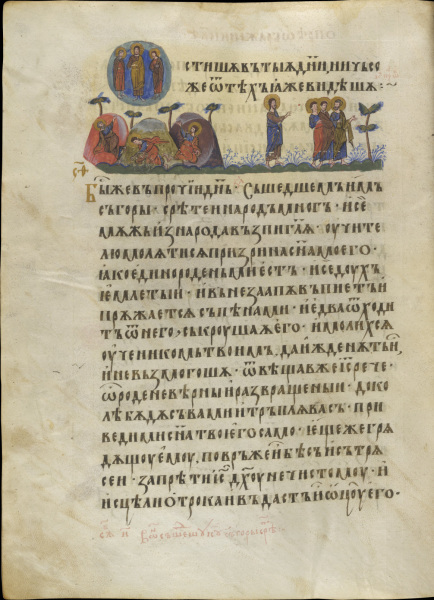 стишѫ въ тыѫ дни, ничьсо
же ѿ тѣхъ ꙗже видѣшѧ :~
Бы же въ прочїи днь · Съшедшемъ имъ
съ горы · срѣте и народъ мнѡгъ · и се
мѫжь из народа възпи глѧ · оучите
лю молѧ ти сѧ призри на сн҃а моего ·
ꙗко единороденъ ми естъ · и се доухъ
емлетъ и · и вънезапѫ въпиетъ и
прѫжаетсѧ съ пѣнами · и едва ѿходи
тъ ѿ него, съкроушаѫ его · и молихсѧ
оученикомъ твоимъ, да ижденѫтъ и,
и не възмогошѧ · ѿвѣщав же іс рече ·
ѡ роде невѣрныи и развращеныи · доко
лѣ бѫдѫ съ вами и тръплѧ вас · при
веди ми сн҃а твоего само · и еще же грѧ
дѫщоу емоу, повръже и бѣсъ и сътрѧ
се и · запрѣти іс дх҃оу нечистомоу · и
исцѣли отрока и въдастъ и ѡц҃оу его ·